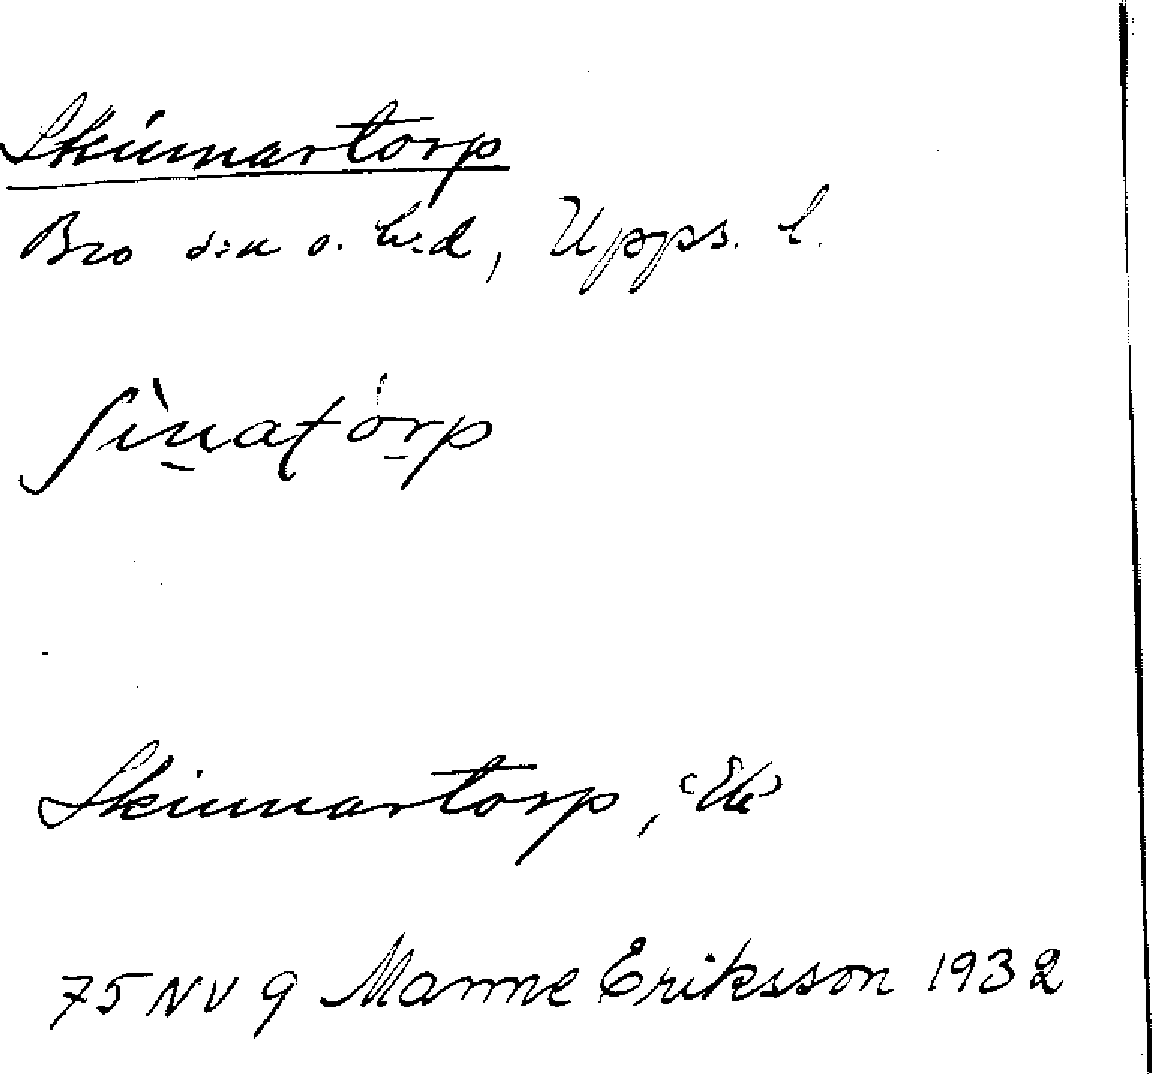 Skinnartorp
Bro sn o. hd, Upps. l.
ʃìnatórp
Skinnartorp, Ek
75 NV 9 Manne Eriksson 1932